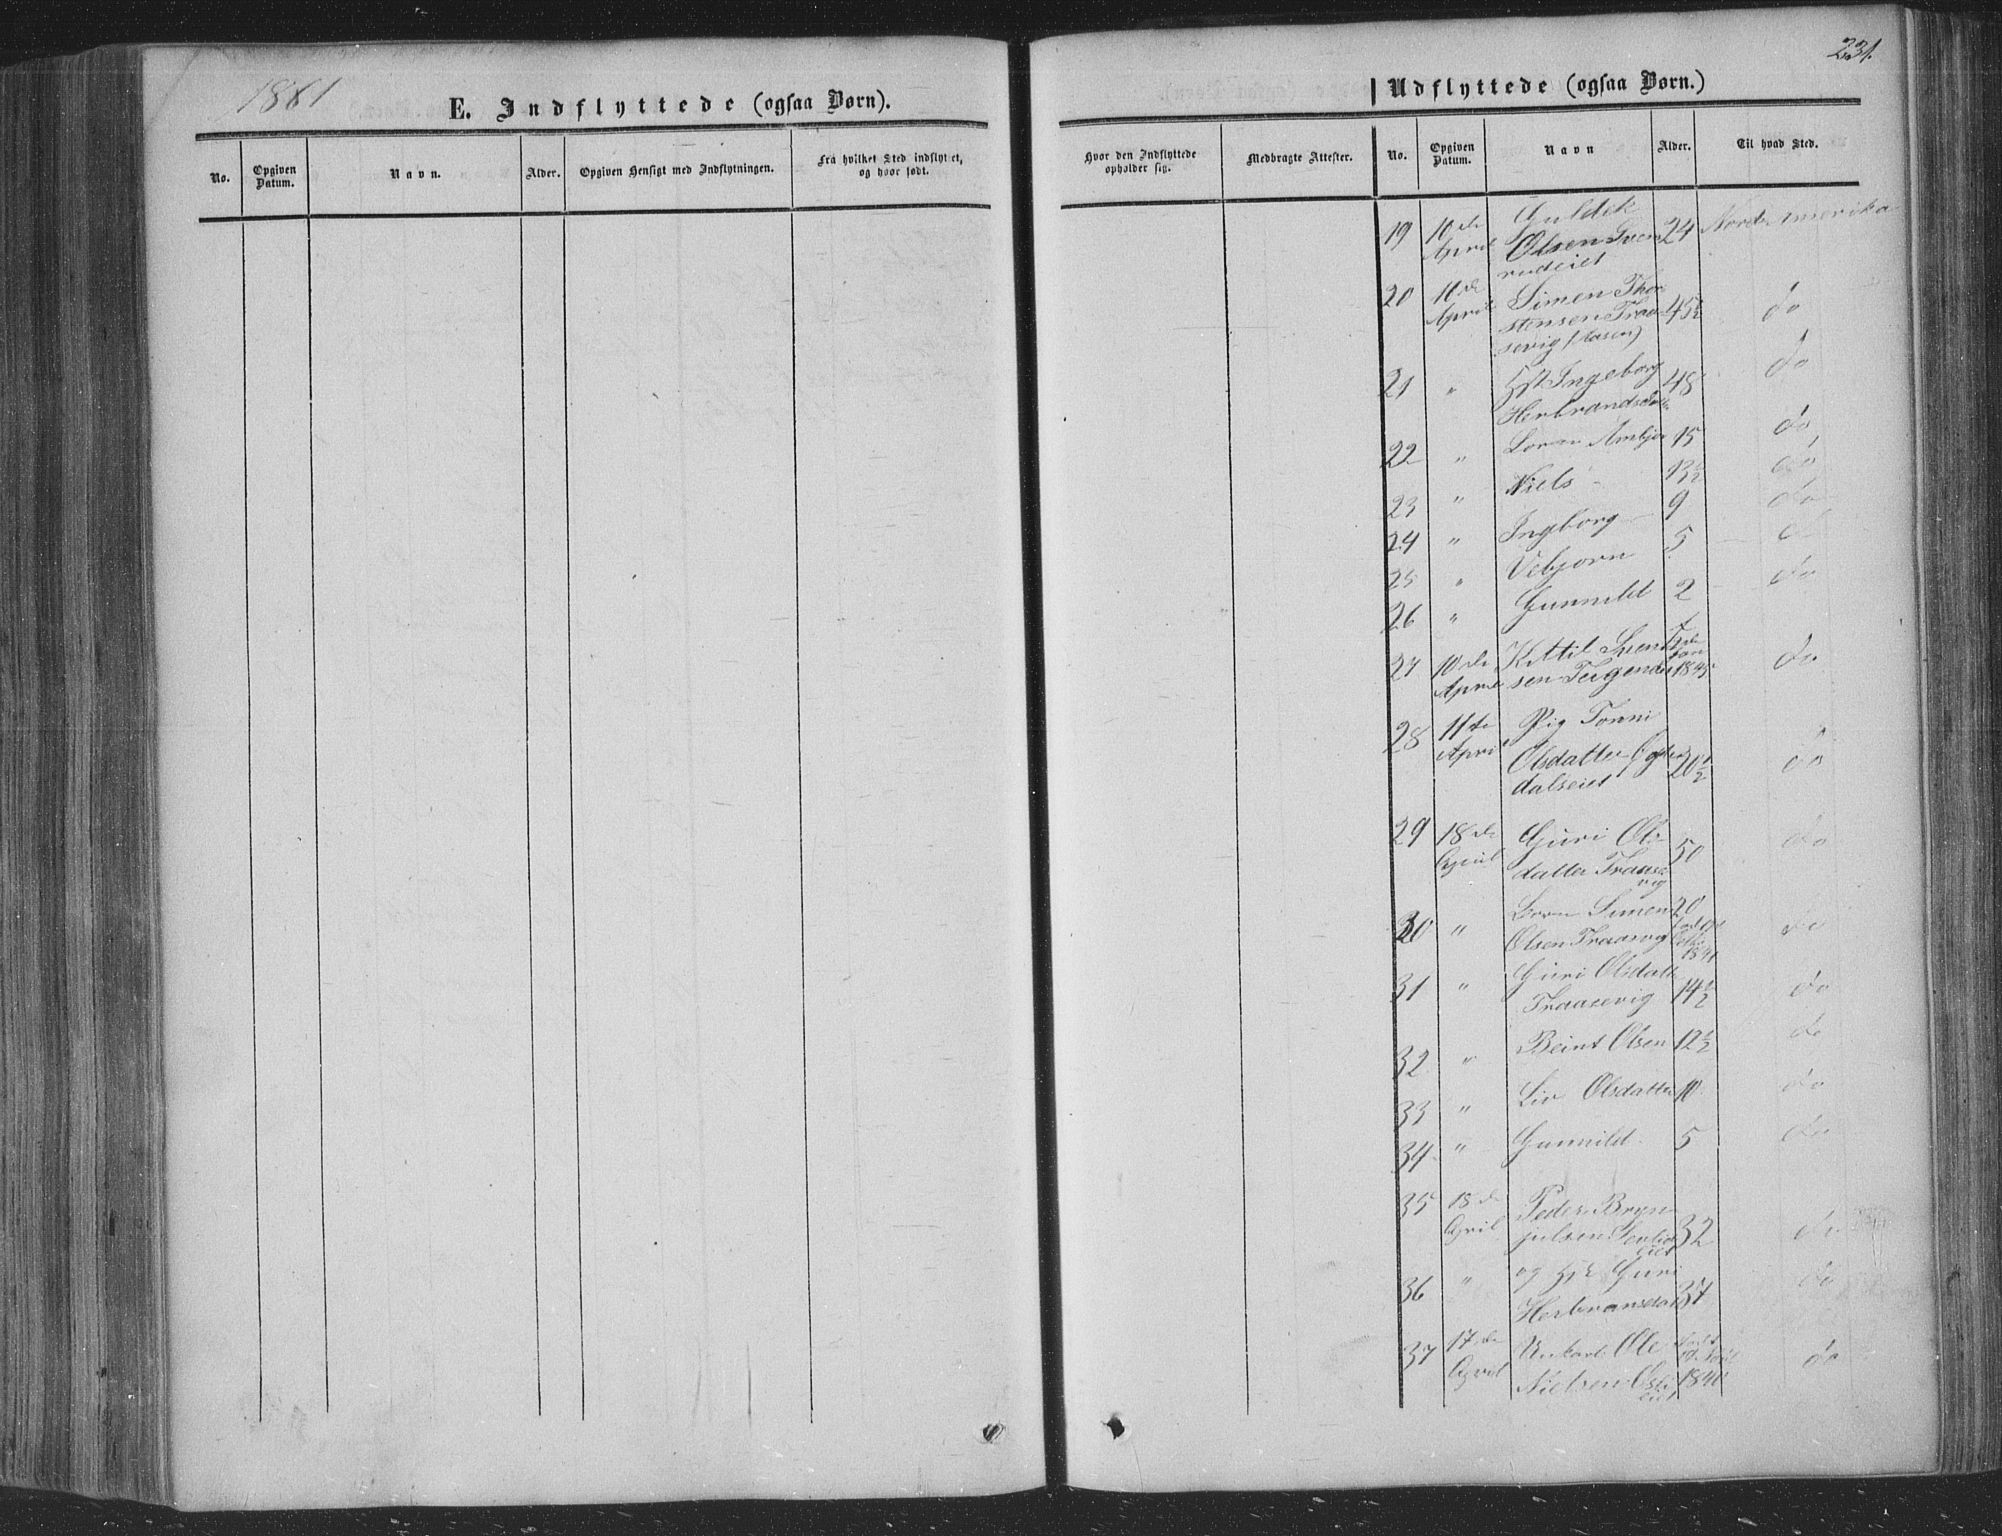 1861
E. Indflyttede (ogsaa Børn).
No.
Opgiven Datum.
Navn.
Alder.
Opgiven Hensigt med Indflytningen.
Fra hvilket Sted indflyttet, og hvor født.
231.
Udflyttede (ogsaa Børn.)
Hvor den Indflyttede opholder sig.
Medbragte Attester.
No.
Opgiven Datum.
Navn
Alder.
Til hvad Sted.
19 10de Guldik 24 Nord Amerika
April Olsen Sven
rudeiet
20 11de Simen Thor 45½ do
April stensen Traa
sevig
21 " Ingeborg 48 do
Herbrandsdatter
22 " Ambjør 15 do
23 " Niels 13½ do
24 " Ingborg 9 do
25 " Vebjørn 5 do
26 " Gunnild 2 do
27 10de Kittil Svend do
April sen 1845
28 11te Pig Tonni
April Olsdatter 20½ do
dalseiet
29 18de Guri Ols 50 do
April datter Traase
vig
30 " Simen 20 do
Olsen Traasevig
1841
31 " Guri Olsdatter 14½ do
Traasevig
32 " Beint Olsen 12½ do
33 " Liv Olsdatter 10 do
34 " Gunnild 5 do
35 18de Peder Bryn
April julsen 32 do
eiet
36 " og Guri do
Herbransdat 37
37 17de Unkarl Ole do
April Nielsen 1840
eiet